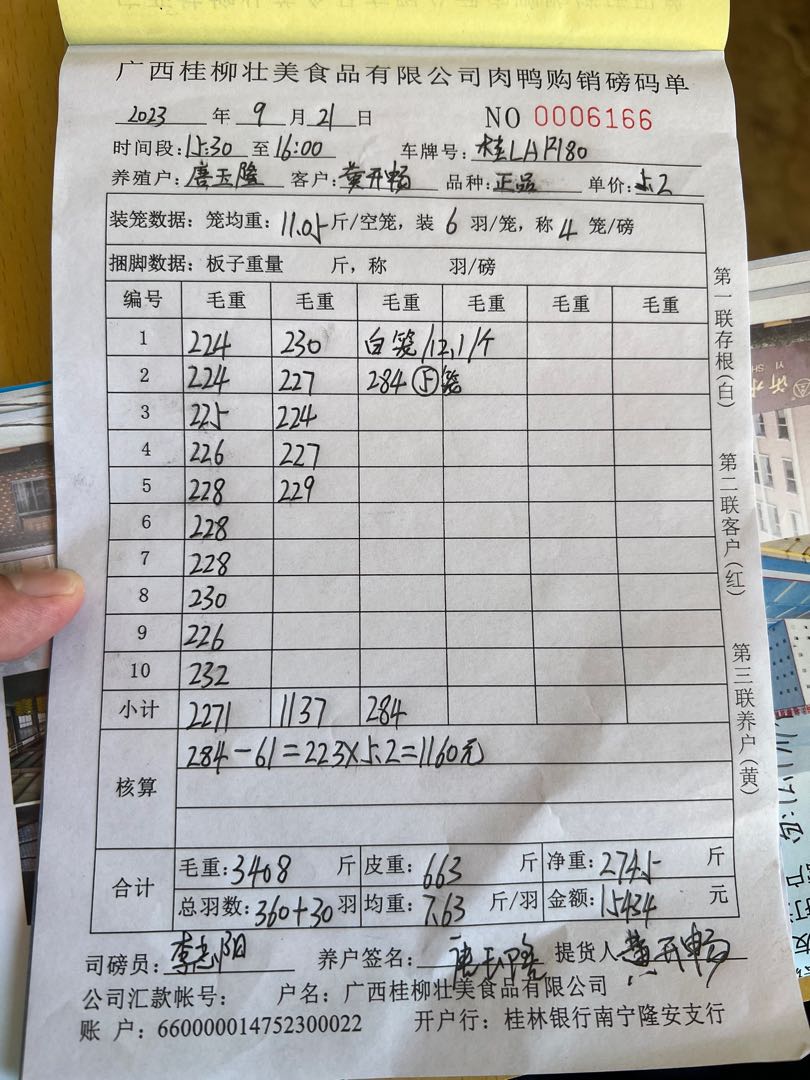 广西桂柳壮美食品有限公司肉鸭购销磅码单
2023 年 9 月 21 日 NO 0006166
时间段:15:30 至 16:00 车牌号:桂LAF180
养殖户:唐玉隆 客户:黄开畅 品种:正品 单价:5.2
装笼数据:笼均重:11.05斤/空笼,装 6 羽/笼,称 4 笼/磅
捆脚数据:板子重量 斤,称 羽/磅
编号 毛重 毛重 毛重 毛重 毛重 毛重
1 224 230 白笼/12.1/个
2 224 227 284 ⑤笼
3 225 224
4 226 227
5 228 229
6 228
7 228
8 230
9 226
10 232
小计 2271 1137 284
核算 284-61=223×5.2=1160元
合计 毛重:3408 斤 皮重:663 斤 净重:2745 斤
总羽数:360+30 羽 均重:7.63 斤/羽 金额:15434 元
司磅员:李志阳 养户签名:唐玉隆 提货人 黄开畅
公司汇款帐号: 户名:广西桂柳壮美食品有限公司
账 户:660000014752300022 开户行:桂林银行南宁隆安支行
第一联存根(白)
第二联客户(红)
第三联养户(黄)